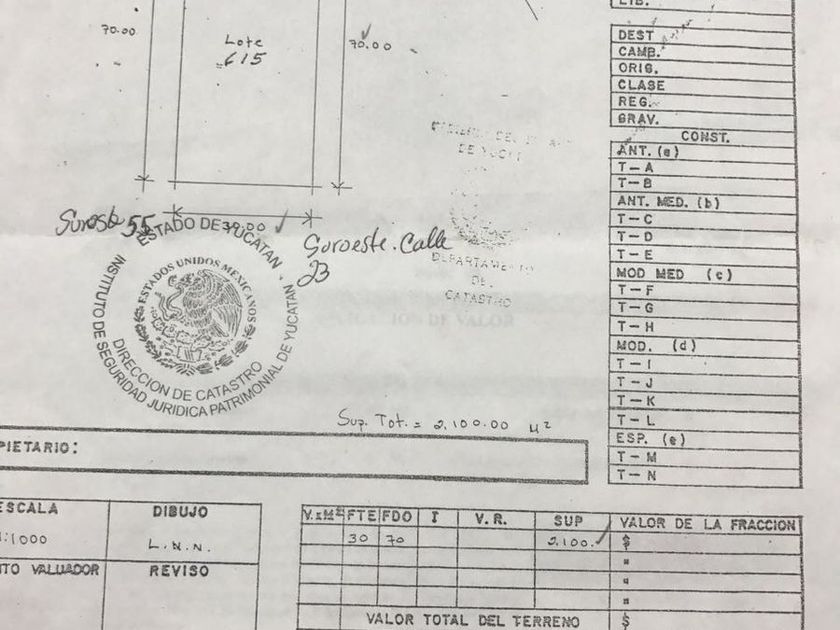 70.00
Lote
615
70.00
DEST
CAMB.
ORIG.
CLASE
REG.
GRAV.
CONST.
ANT. (a)
T-A
T-B
ANT. MED. (b)
T-C
T-D
T-E
MOD MED (c)
T-F
T-G
T-H
MOD. (d)
T-I
T-J
T-K
T-L
ESP. (e)
T-M
T-N
55
Suroeste. Calle
23
ESTADO DE YUCATAN
INSTITUTO DE SEGURIDAD JURIDICA PATRIMONIAL DE YUCATAN
ESTADOS UNIDOS MEXICANOS
DIRECCION DE CATASTRO
DE YUC
DEPARTAMENTO
DEL
CATASTRO
DE VALOR
Sup. Tot. = 2,100.00 M²
PIETARIO:
ESCALA
1:1000
DIBUJO
L.N.N.
ITO VALUADOR
REVISO
V.xM² FTE FDO I V.R. SUP VALOR DE LA FRACCION
30 70 2,100. $
"
"
"
VALOR TOTAL DEL TERRENO $